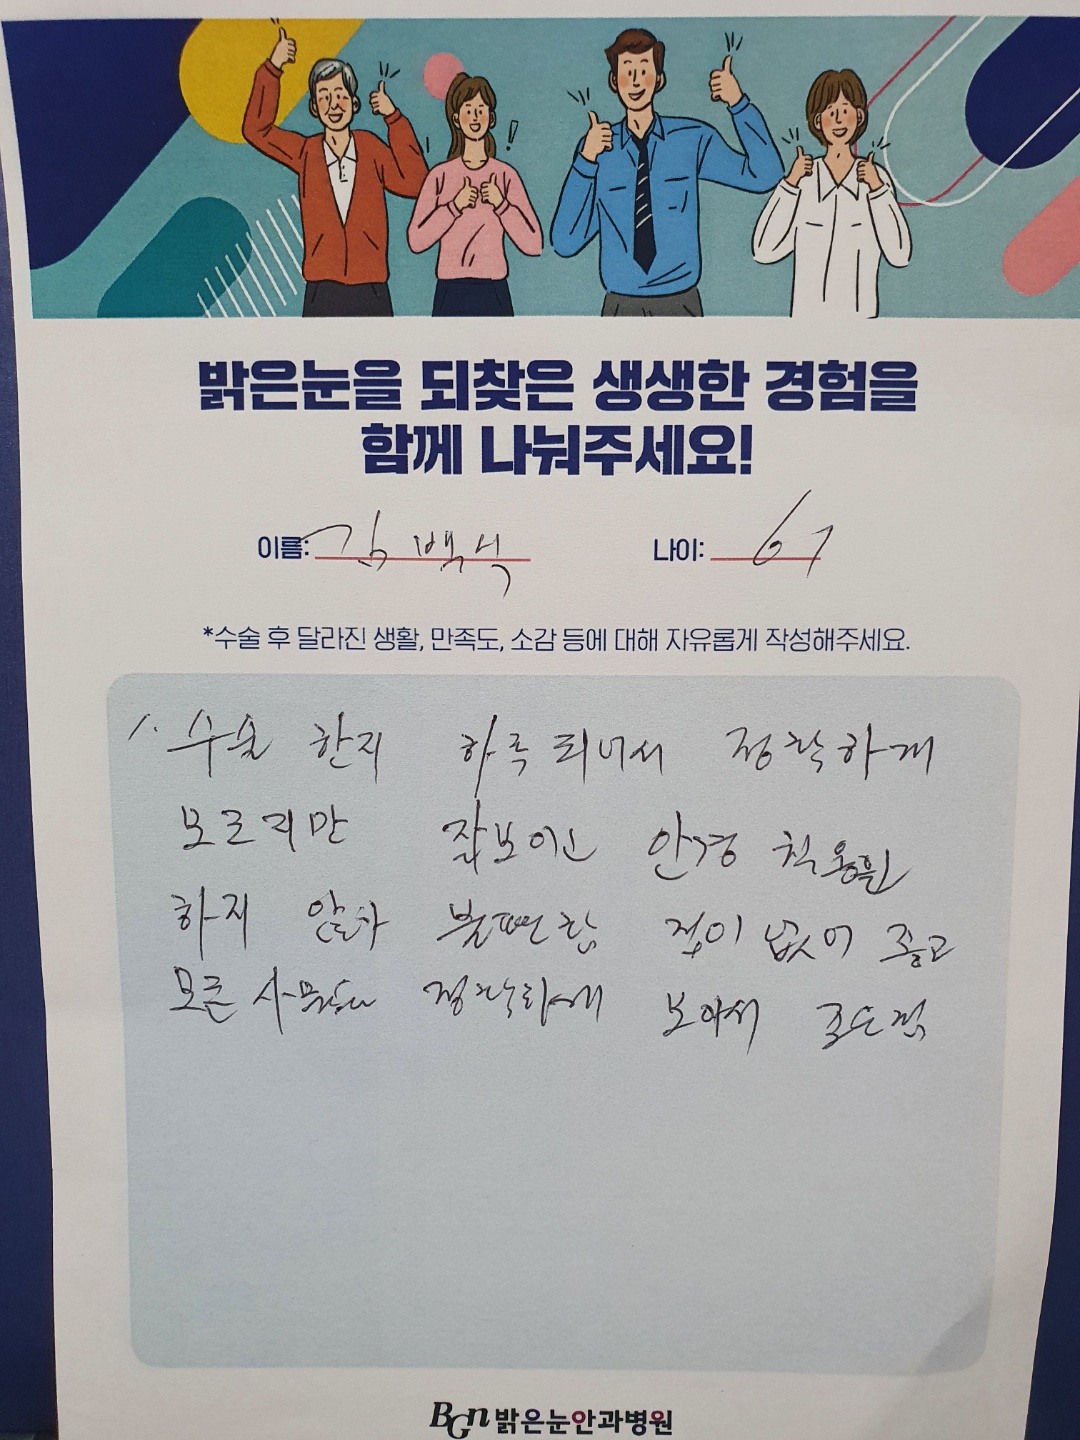 밝은눈을 되찾은 생생한 경험을
함께 나눠주세요!
이름: 김백식 나이: 67
*수술 후 달라진 생활, 만족도, 소감 등에 대해 자유롭게 작성해주세요.
1. 수술 한지 하루 되너서 정확하게
모르지만 잘보이고 안경 착용을
하지 않아 불편함 점이 없어 좋고
모른 사물을 정확하게 보아서 좋은점
BGn 밝은눈안과병원